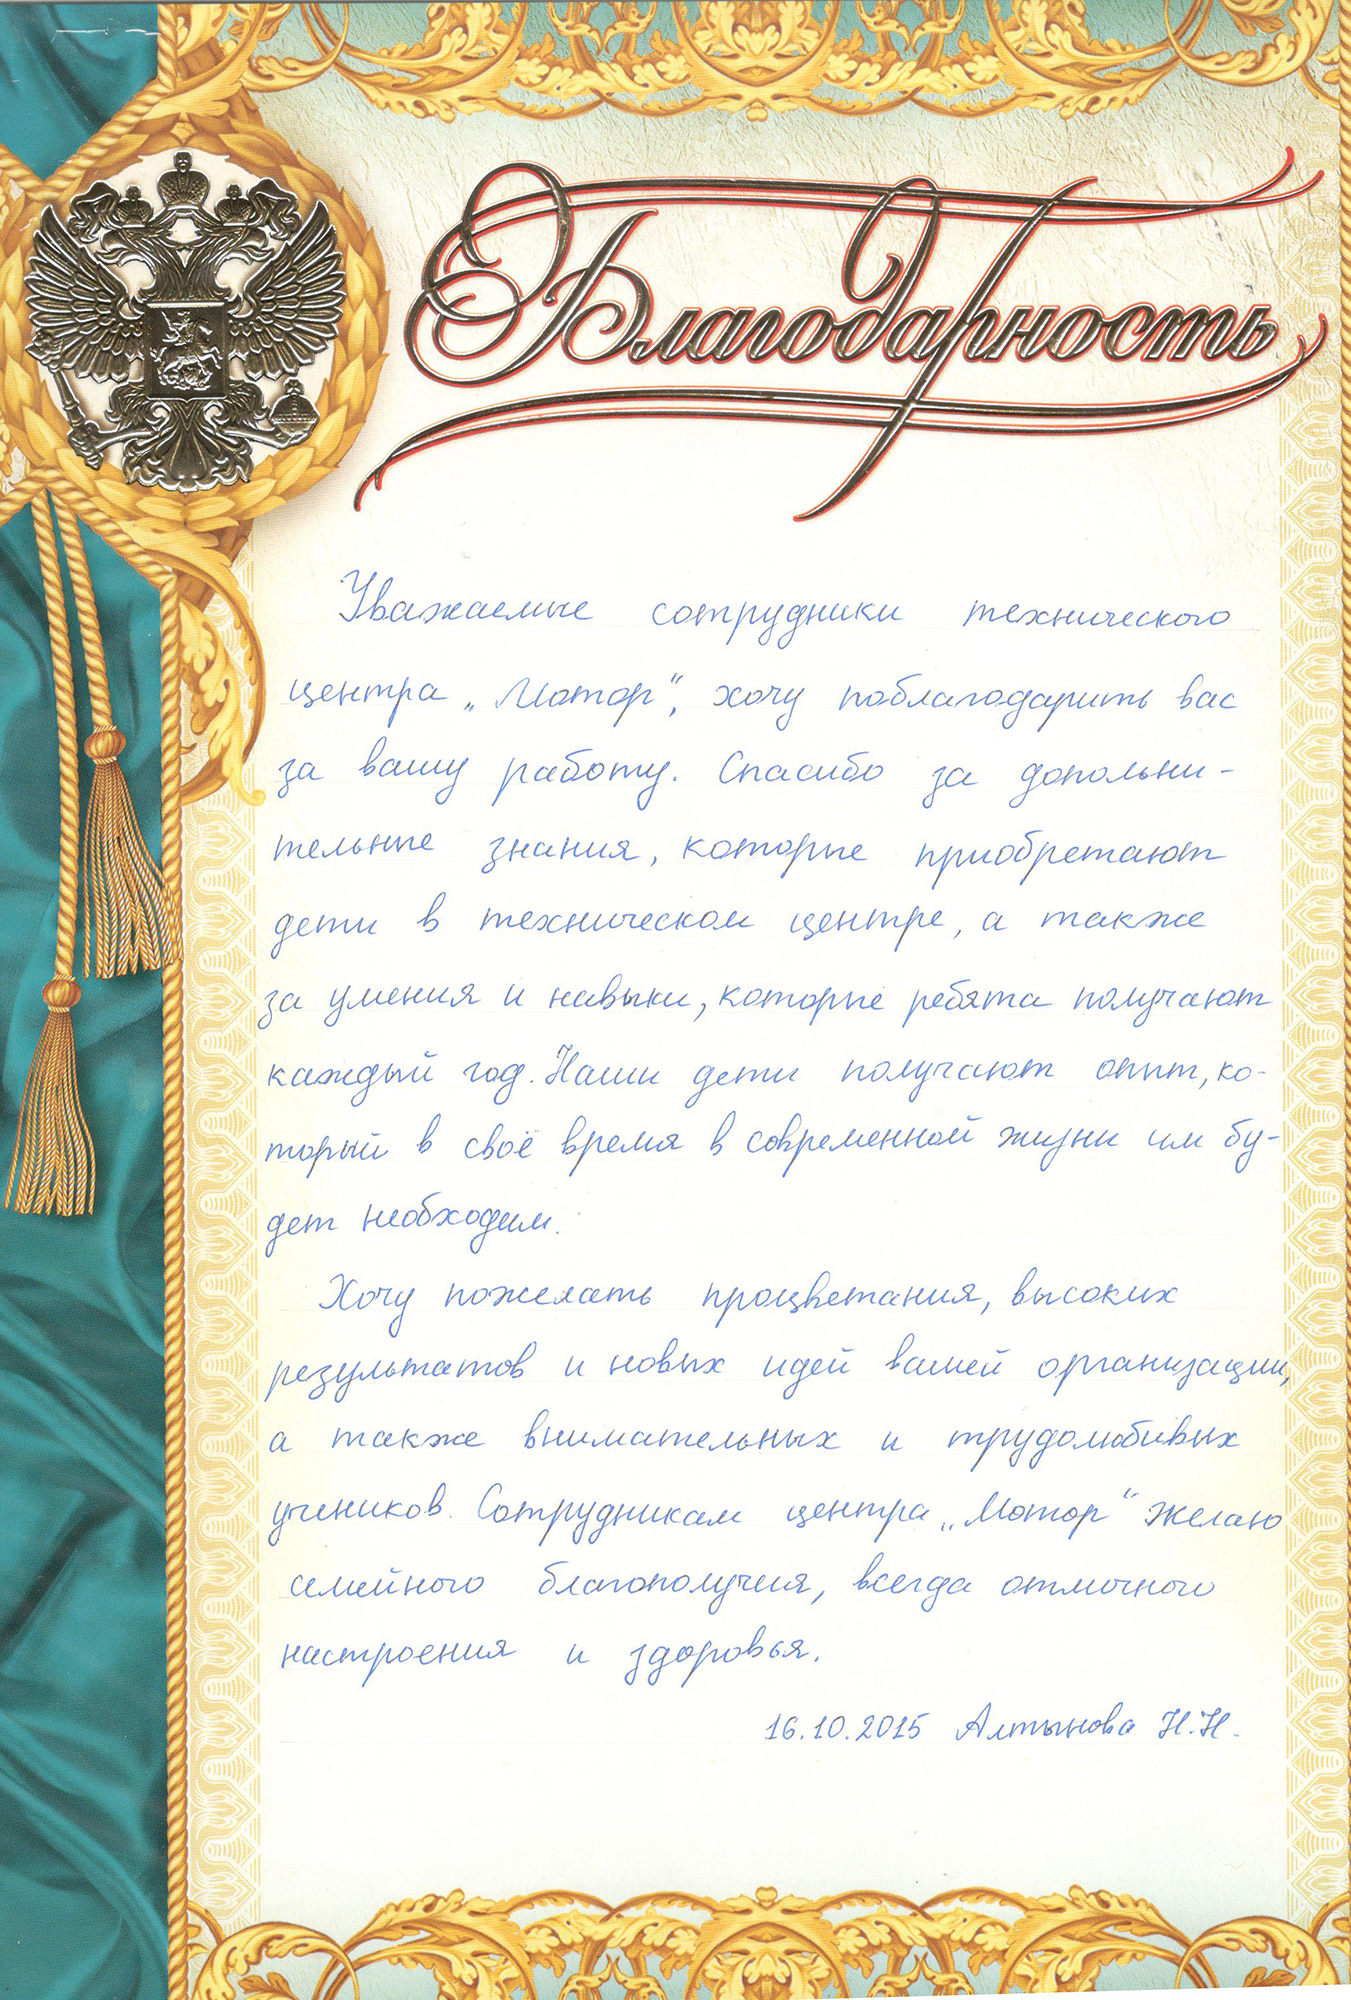 Благодарность
Уважаемые сотрудники технического
центра „Мотор“, хочу поблагодарить вас
за вашу работу. Спасибо за дополни-
тельные знания, которые приобретают
дети в техническом центре, а также
за умения и навыки, которые ребята получают
каждый год. Наши дети получают опыт, ко-
торый в своё время в современной жизни им бу-
дет необходим.
Хочу пожелать процветания, высоких
результатов и новых идей вашей организации,
а также внимательных и трудолюбивых
учеников. Сотрудникам центра „Мотор“ желаю
семейного благополучия, всегда отличного
настроения и здоровья.
16.10.2015 Алтынова Н.Н.